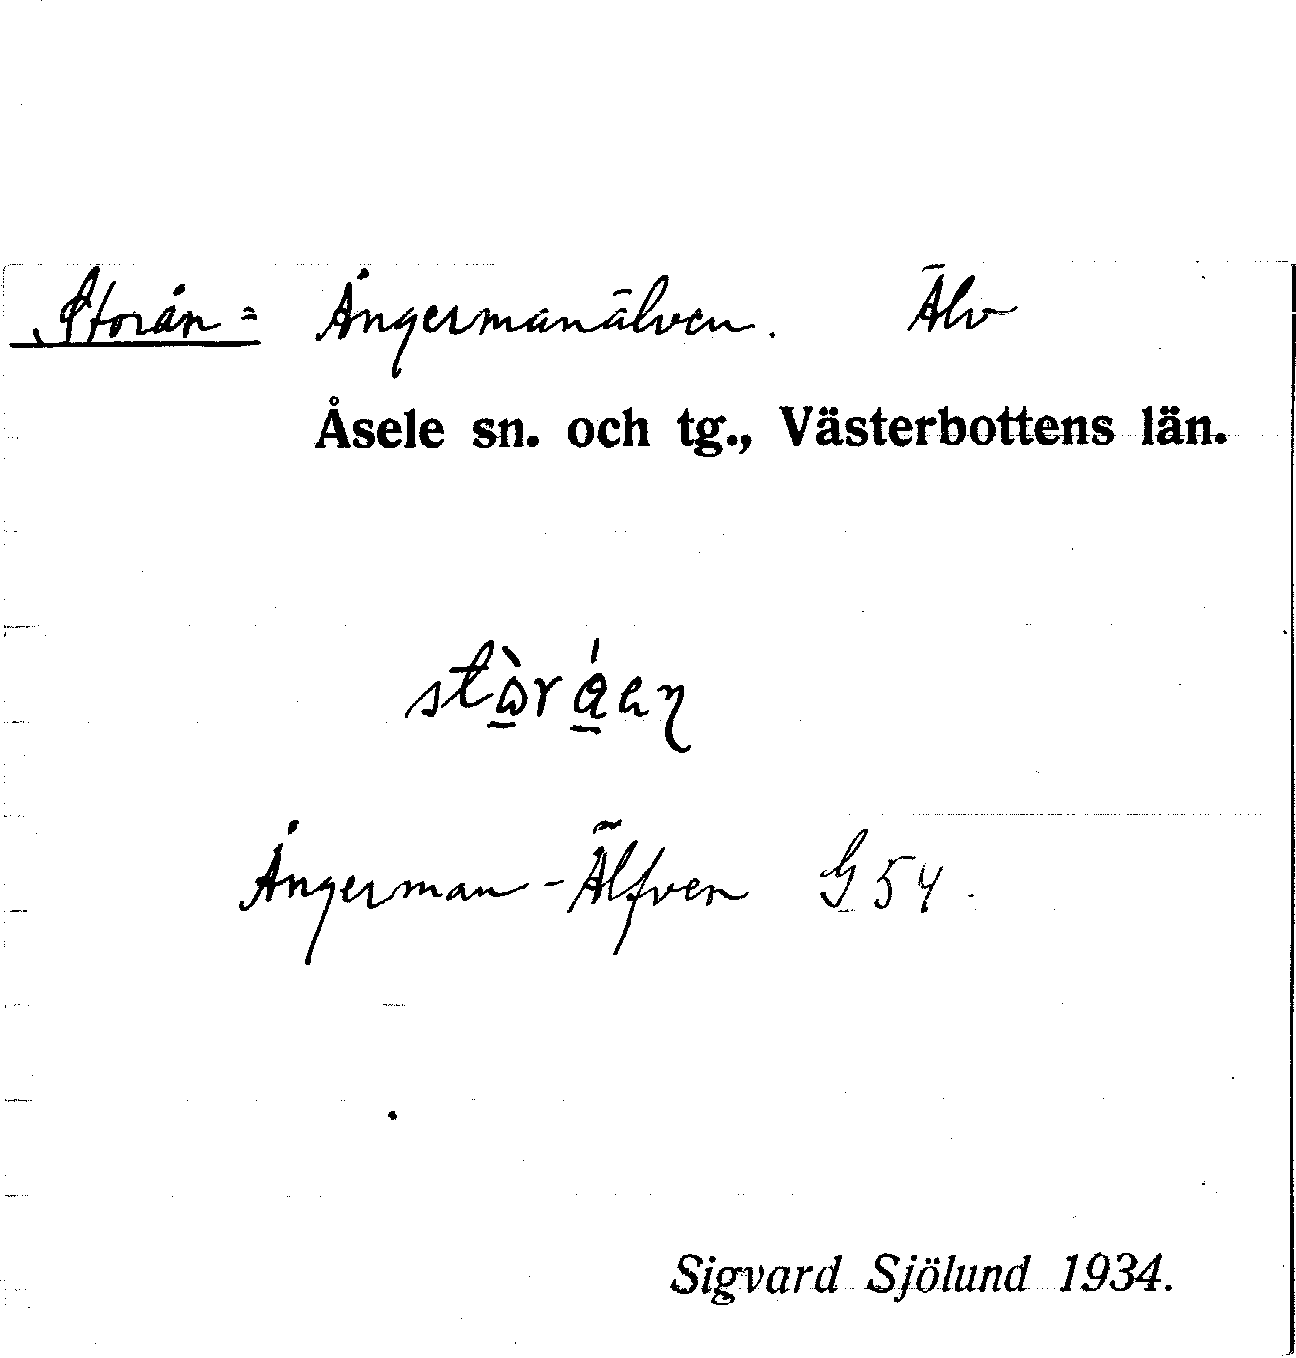 Storån = Ångermanälven. Älv
Åsele sn. och tg., Västerbottens län.
Ångerman-Älfven G 54.
Sigvard Sjölund 1934.